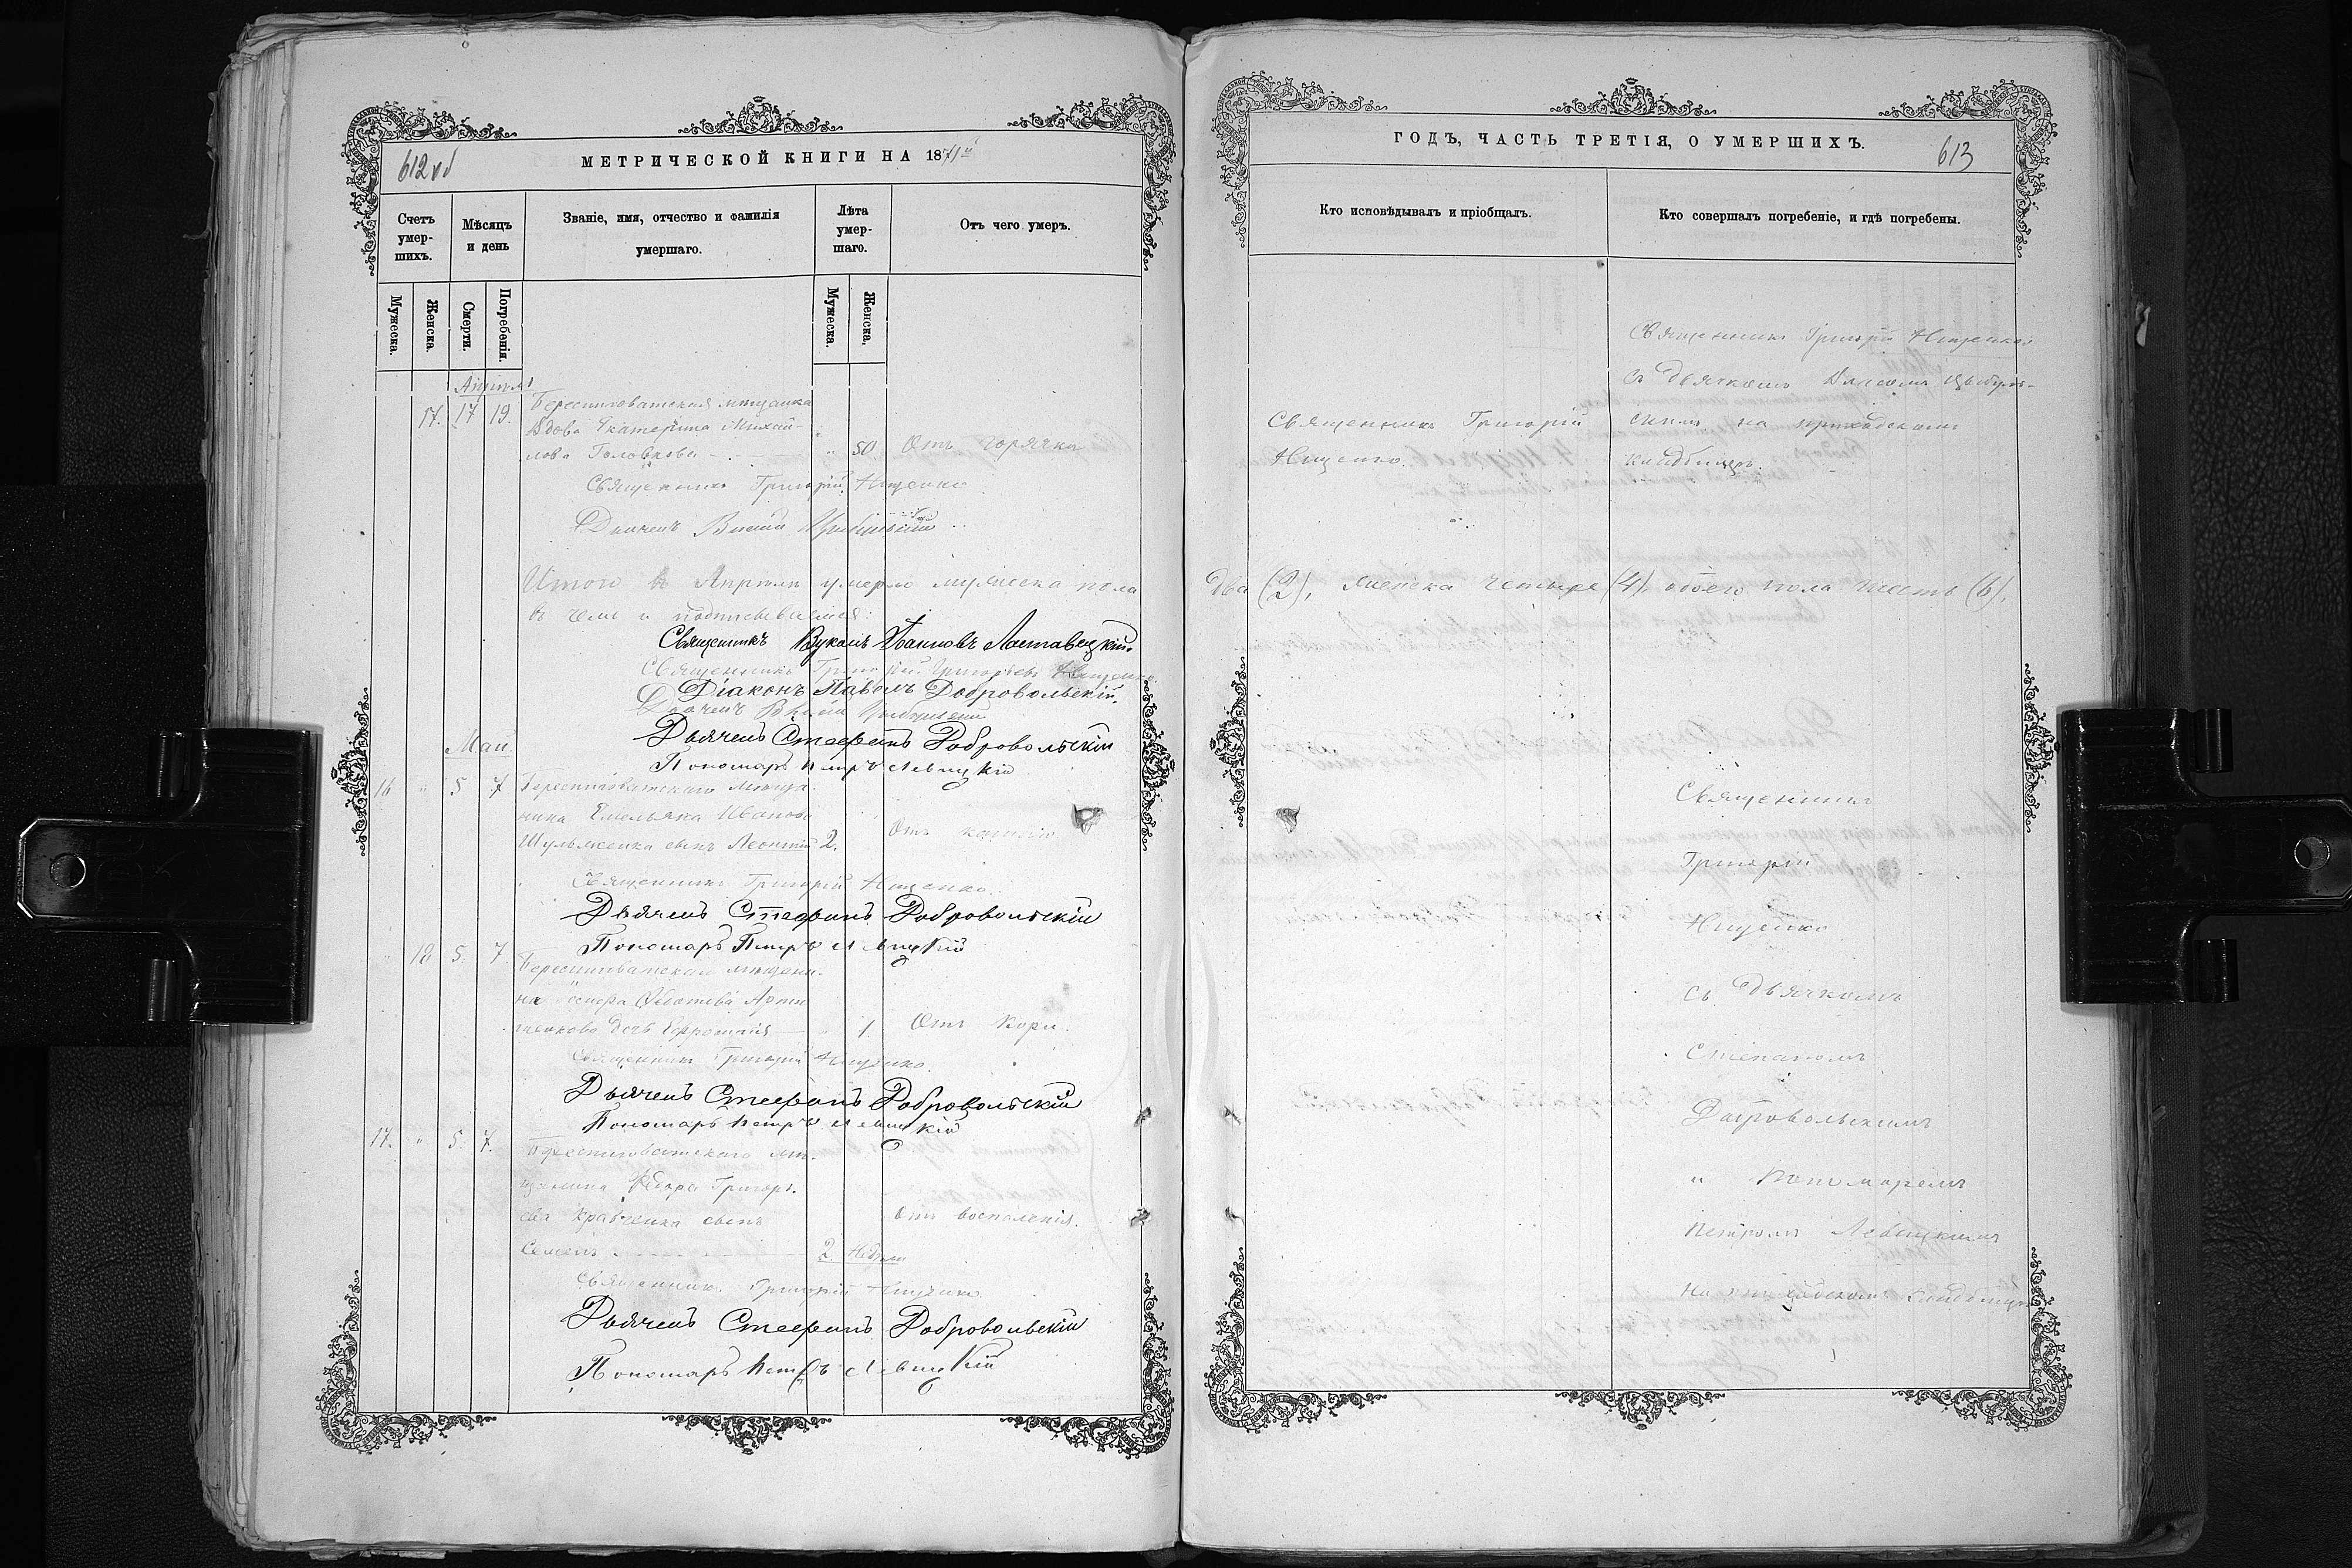 612 об
МЕТРИЧЕСКОЙ КНИГИ НА 1871й
Счетъ умер-шихъ.
Мѣсяцъ и день
Званіе, имя, отчество и фамилія умершаго.
Лѣта умер-шаго.
Отъ чего умеръ.
Мужеска.
Женска.
Смерти.
Погребенія.
Мужеска.
Женска.
17. 17 19.
Вдова Екатерина Михай-
лова Головкова 50. Отъ горячки
Священникъ Григорій Нищенко
Дьячекъ
Итого въ Апрѣлѣ умерло мужеска пола
въ чемъ и подписываемся:
Священникъ Іоанновъ
Священникъ Григорій Григорьевъ Нищенко
Діаконъ Павелъ Добровольскій.
Дьячекъ
Дьячекъ Стефанъ Добровольскій
Пономарь Петръ Левицкій
Маи
16 " 5 7
ника Емельяна Иванова
Шульженка сынъ Леонтій 2. Отъ
Священникъ Григорій Нищенко.
Дьячекъ Стефанъ Добровольскій
Пономарь Петръ Левицкій
" 18 5. 7.
дочь 1. Отъ Кори.
Священникъ Григорій Нищенко.
Дьячекъ Стефанъ Добровольскій
Пономарь Петръ Левицкій
17. " 5. 7.
щанина Ѳедора Григорь-
ева Кравченка сынъ Отъ воспаленія.
Семенъ 2 Недѣли
Священникъ Григорій Нищенко.
Дьячекъ Стефанъ Добровольскій
Пономарь Петръ Левицкій
ГОДЪ, ЧАСТЬ ТРЕТІЯ, О УМЕРШИХЪ.
613
Кто исповѣдывалъ и пріобщалъ.
Кто совершалъ погребеніе, и гдѣ погребены.
Священникъ Григорій
Нищенко.
Священникъ Григорій Нищенко
съ дьячкомъ Цыбуль-
скимъ на приходскомъ
кладбищѣ.
два (2), женска четыре (4), обоего пола шесть (6),
Священникъ
Григорій
Нищенко
съ дьячкомъ
Степаномъ
Добровольскимъ
и Пономаремъ
Петромъ Левицкимъ
на приходскомъ кладбищѣ